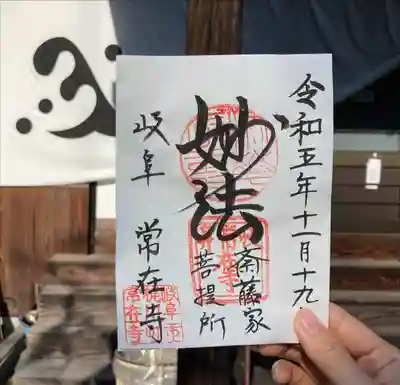 令和五年十一月十九
妙法
斎藤家
菩提所
岐阜 常在寺
岐阜市
常在寺